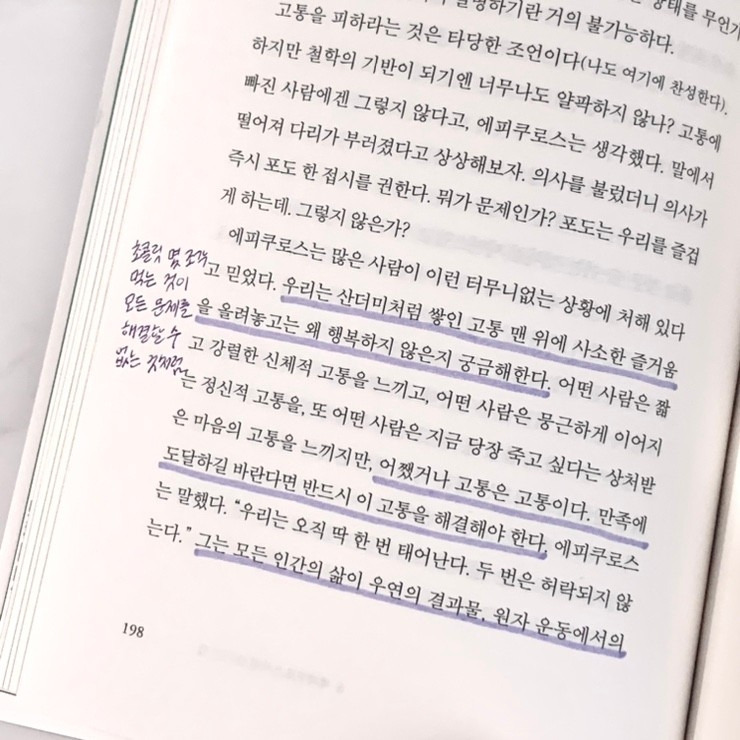 상태를 무언가
설명하기란 거의 불가능하다.
고통을 피하라는 것은 타당한 조언이다(나도 여기에 찬성한다).
하지만 철학의 기반이 되기엔 너무나도 얄팍하지 않나? 고통에
빠진 사람에겐 그렇지 않다고, 에피쿠로스는 생각했다. 말에서
떨어져 다리가 부러졌다고 상상해보자. 의사를 불렀더니 의사가
즉시 포도 한 접시를 권한다. 뭐가 문제인가? 포도는 우리를 즐겁
게 하는데. 그렇지 않은가?
에피쿠로스는 많은 사람이 이런 터무니없는 상황에 처해 있다
고 믿었다. 우리는 산더미처럼 쌓인 고통 맨 위에 사소한 즐거움
을 올려놓고는 왜 행복하지 않은지 궁금해한다. 어떤 사람은 짧
고 강렬한 신체적 고통을 느끼고, 어떤 사람은 뭉근하게 이어지
는 정신적 고통을, 또 어떤 사람은 지금 당장 죽고 싶다는 상처받
은 마음의 고통을 느끼지만, 어쨌거나 고통은 고통이다. 만족에
도달하길 바란다면 반드시 이 고통을 해결해야 한다. 에피쿠로스
는 말했다. “우리는 오직 딱 한 번 태어난다. 두 번은 허락되지 않
는다.” 그는 모든 인간의 삶이 우연의 결과물, 원자 운동에서의
초콜릿 몇 조각
먹는 것이
모든 문제를
해결할 수
없는 것처럼
198